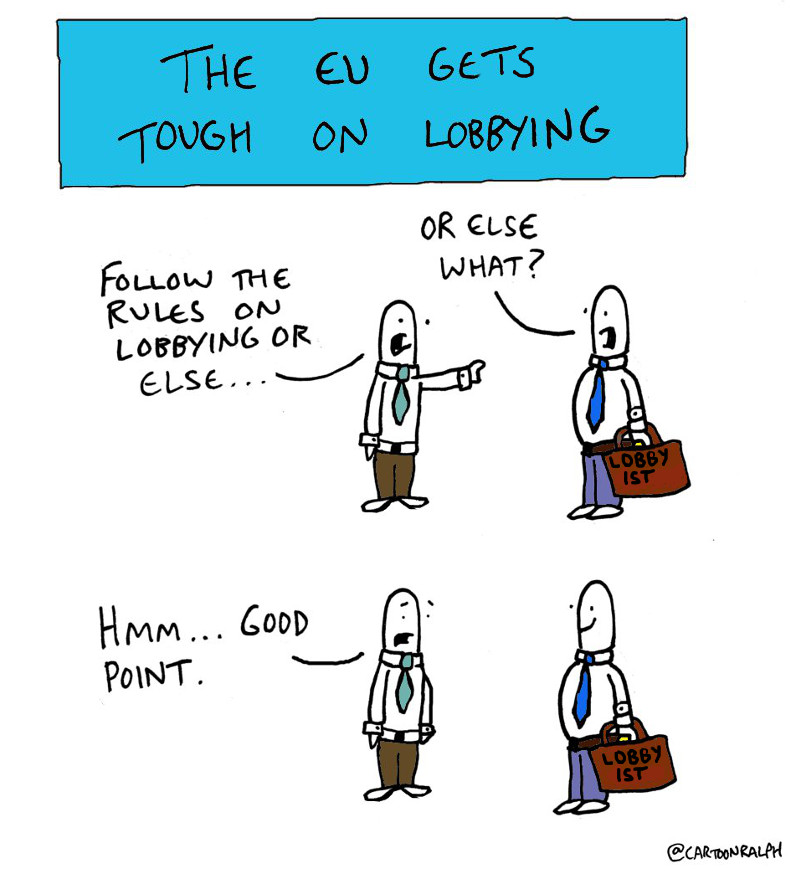 THE EU GETS
TOUGH ON LOBBYING
FOLLOW THE
RULES ON
LOBBYING OR
ELSE...
OR ELSE
WHAT?
LOBBY
IST
HMM... GOOD
POINT.
LOBBY
IST
@CARTOONRALPH